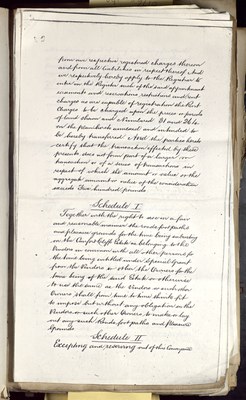 from our respective registered charges thereon
and from all liabilities in respect thereof And
we respectively hereby apply to the Registrar to
enter in the Register such of the said appointments
covenants and reservations restrictions and rent
charges as are capable of registration the Rent
Charges to be charged upon the piece or parcels
of land shown and Numbered 31 and 36 to
on the plan hereto annexed and intended to
be hereby transferred And the parties hereto
certify that the transaction effected by these
presents does not form part of a larger
transaction or of a series of transactions in
respect of which the amount or value or the
aggregate amount or value of the consideration
exceeds Five hundred pounds
Schedule I
Together with the right to use in a fair
and reasonable manner the roads footpaths
and pleasure grounds for the time being existing
in the Cliff Estate so belonging to the
Vendors in common with all other persons for
the time being entitled under Special Grant
from the Vendors or other the Owners for the
time being of the said Estate or otherwise
to use the same as the Vendors or such other
Owners shall from time to time think fit
to impose but without any obligation on the
Vendors or such other Owners to make or lay
out any such Roads footpaths and Pleasure
Grounds
Schedule II
Excepting and reserving out of this Conveyance